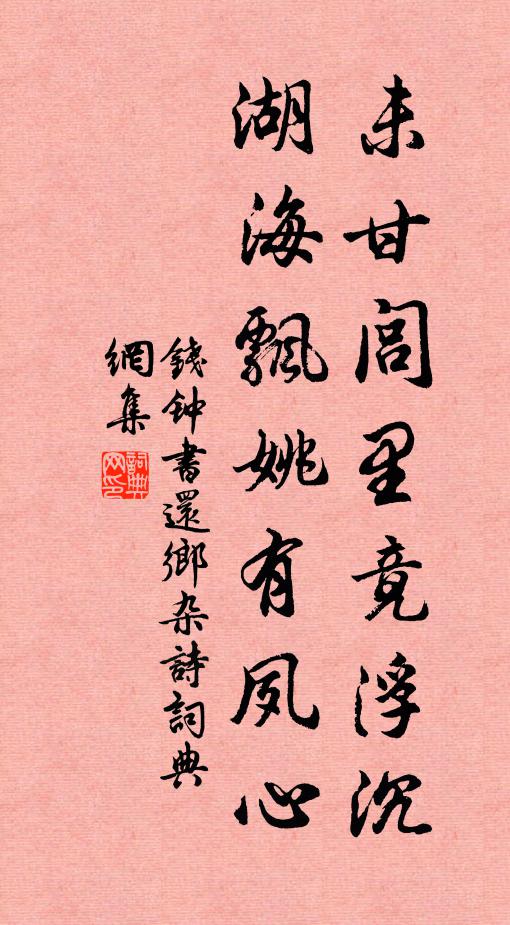 未甘閭里竟浮沉
湖海飄姚有夙心
錢钟書還鄉杂詩詞典
網集
詞典网印